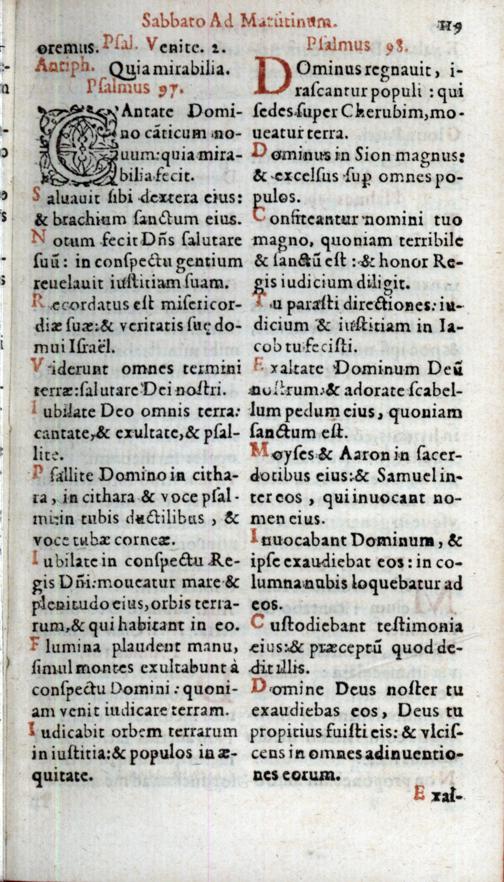 Sabbato Ad Matutinum.
119
oremus. Psal. Venite. 2.
Antiph. Quia mirabilia.
Psalmus 97.
CAntate Domi-
no cãticum no-
uum: quia mira-
bilia fecit.
Saluauit sibi dextera eius:
& brachium sanctum eius.
Notum fecit Dñs salutare
suũ: in conspectu gentium
reuelauit iustitiam suam.
Recordatus est misericor-
diæ suæ: & veritatis suę do-
mui Israël.
Viderunt omnes termini
terræ: salutare Dei nostri.
Iubilate Deo omnis terra:
cantate, & exultate, & psal-
lite.
Psallite Domino in citha-
ra, in cithara & voce psal-
mi: in tubis ductilibus, &
voce tubæ corneæ.
Iubilate in conspectu Re-
gis Dñi: moueatur mare &
plenitudo eius, orbis terra-
rum, & qui habitant in eo.
Flumina plaudent manu,
simul montes exultabunt à
conspectu Domini: quoni-
am venit iudicare terram.
Iudicabit orbem terrarum
in iustitia: & populos in æ-
quitate.
Psalmus 98.
DOminus regnauit, i-
rascantur populi: qui
sedes super Cherubim, mo-
ueatur terra.
Dominus in Sion magnus:
& excelsus sup omnes po-
pulos.
Confiteantur nomini tuo
magno, quoniam terribile
& sanctũ est: & honor Re-
gis iudicium diligit.
Tu parasti directiones: iu-
dicium & iustitiam in Ia-
cob tu fecisti.
Exaltate Dominum Deũ
nostrum: & adorate scabel-
lum pedum eius, quoniam
sanctum est.
Moyses & Aaron in sacer-
dotibus eius: & Samuel in-
ter eos, qui inuocant no-
men eius.
Inuocabant Dominum, &
ipse exaudiebat eos: in co-
lumna nubis loquebatur ad
eos.
Custodiebant testimonia
eius: & præceptũ quod de-
dit illis.
Domine Deus noster tu
exaudiebas eos, Deus tu
propitius fuisti eis: & vlcis-
cens in omnes adinuentio-
nes eorum.
Exal-